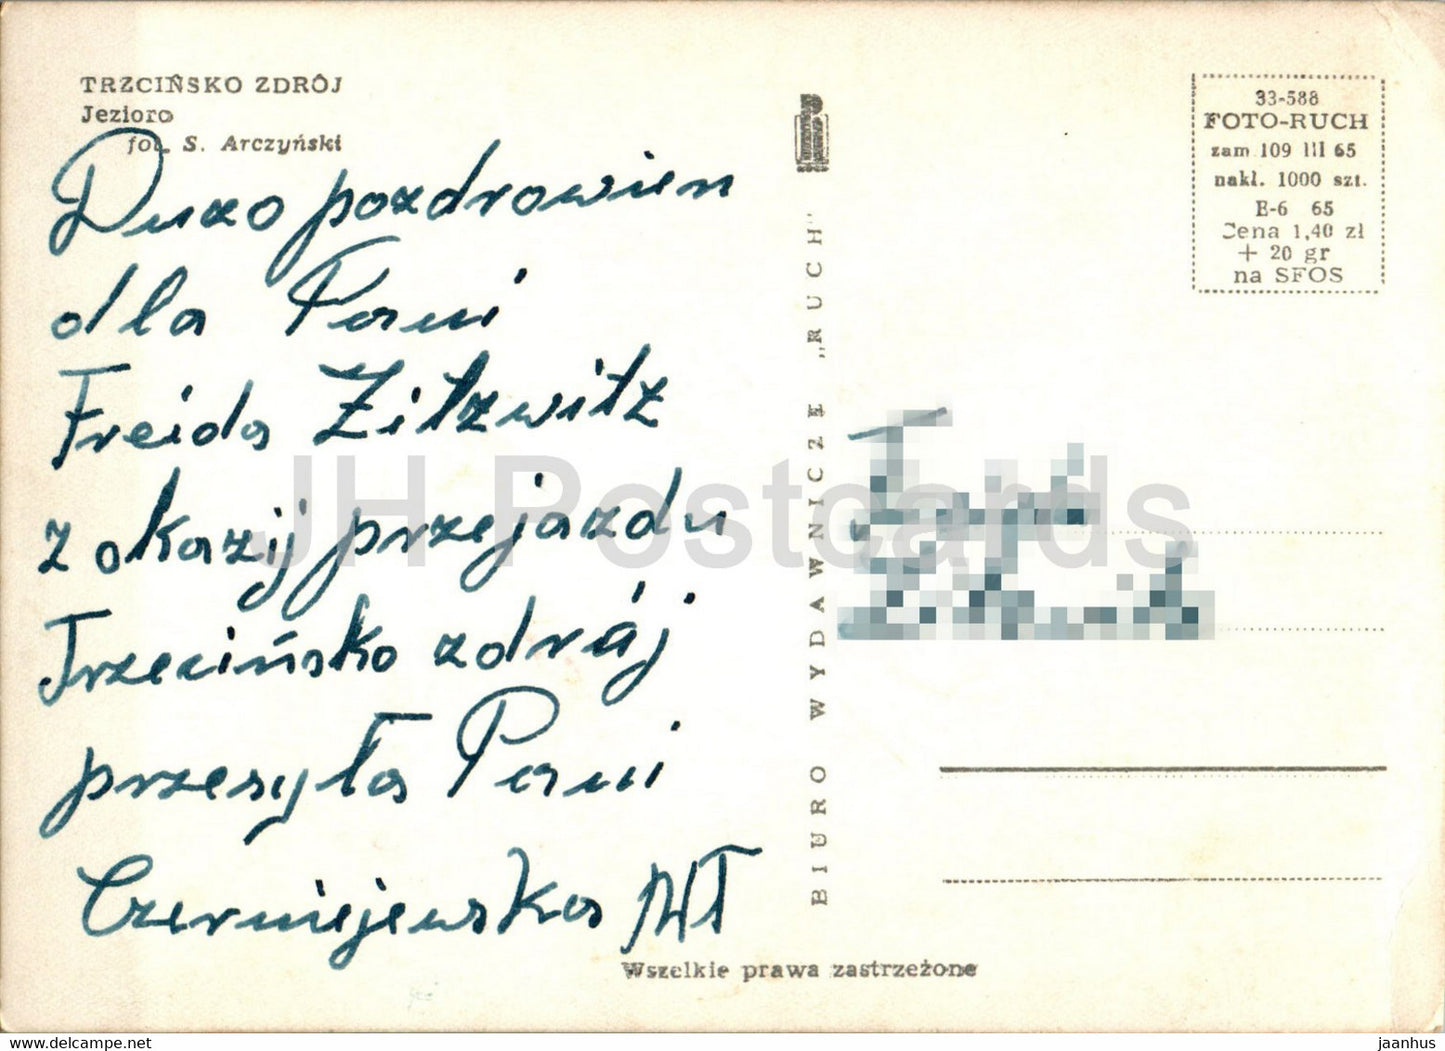 TRZCIŃSKO ZDRÓJ
Jezioro
fot. S. Arczyński
Duzo pozdrowien
dla Pani
Freida Zitzwitz
z okazij przejazdu
Trzecińsko zdrój
przesyła Pani
Czerniejewska
BIURO WYDAWNICZE „RUCH"
33-588
FOTO-RUCH
zam 109 III 65
nakł. 1000 szt.
E-6 65
Cena 1,40 zł
+ 20 gr
na SFOS
Wszelkie prawa zastrzeżone
JH Postcards
www.delcampe.net
jaanhus